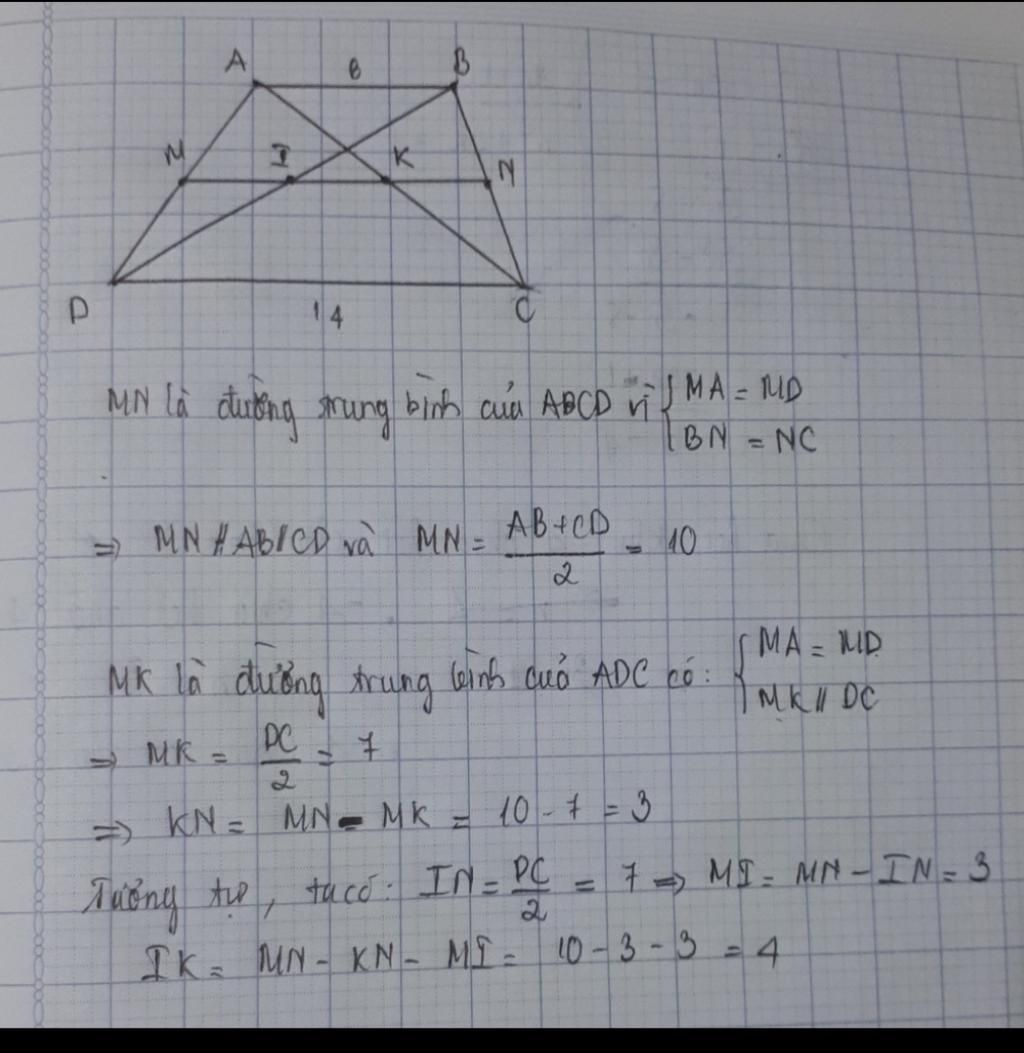 A 6 B
M I K N
D 14 C
MN là đường trung bình của ABCD vì { MA = MD
BN = NC
⇒ MN // AB // CD và MN = (AB + CD)/2 = 10
MK là đường trung bình của ADC có: { MA = MD
MK // DC
⇒ MK = DC/2 = 7
⇒ KN = MN - MK = 10 - 7 = 3
Tương tự, ta có: IN = DC/2 = 7 ⇒ MI = MN - IN = 3
IK = MN - KN - MI = 10 - 3 - 3 = 4